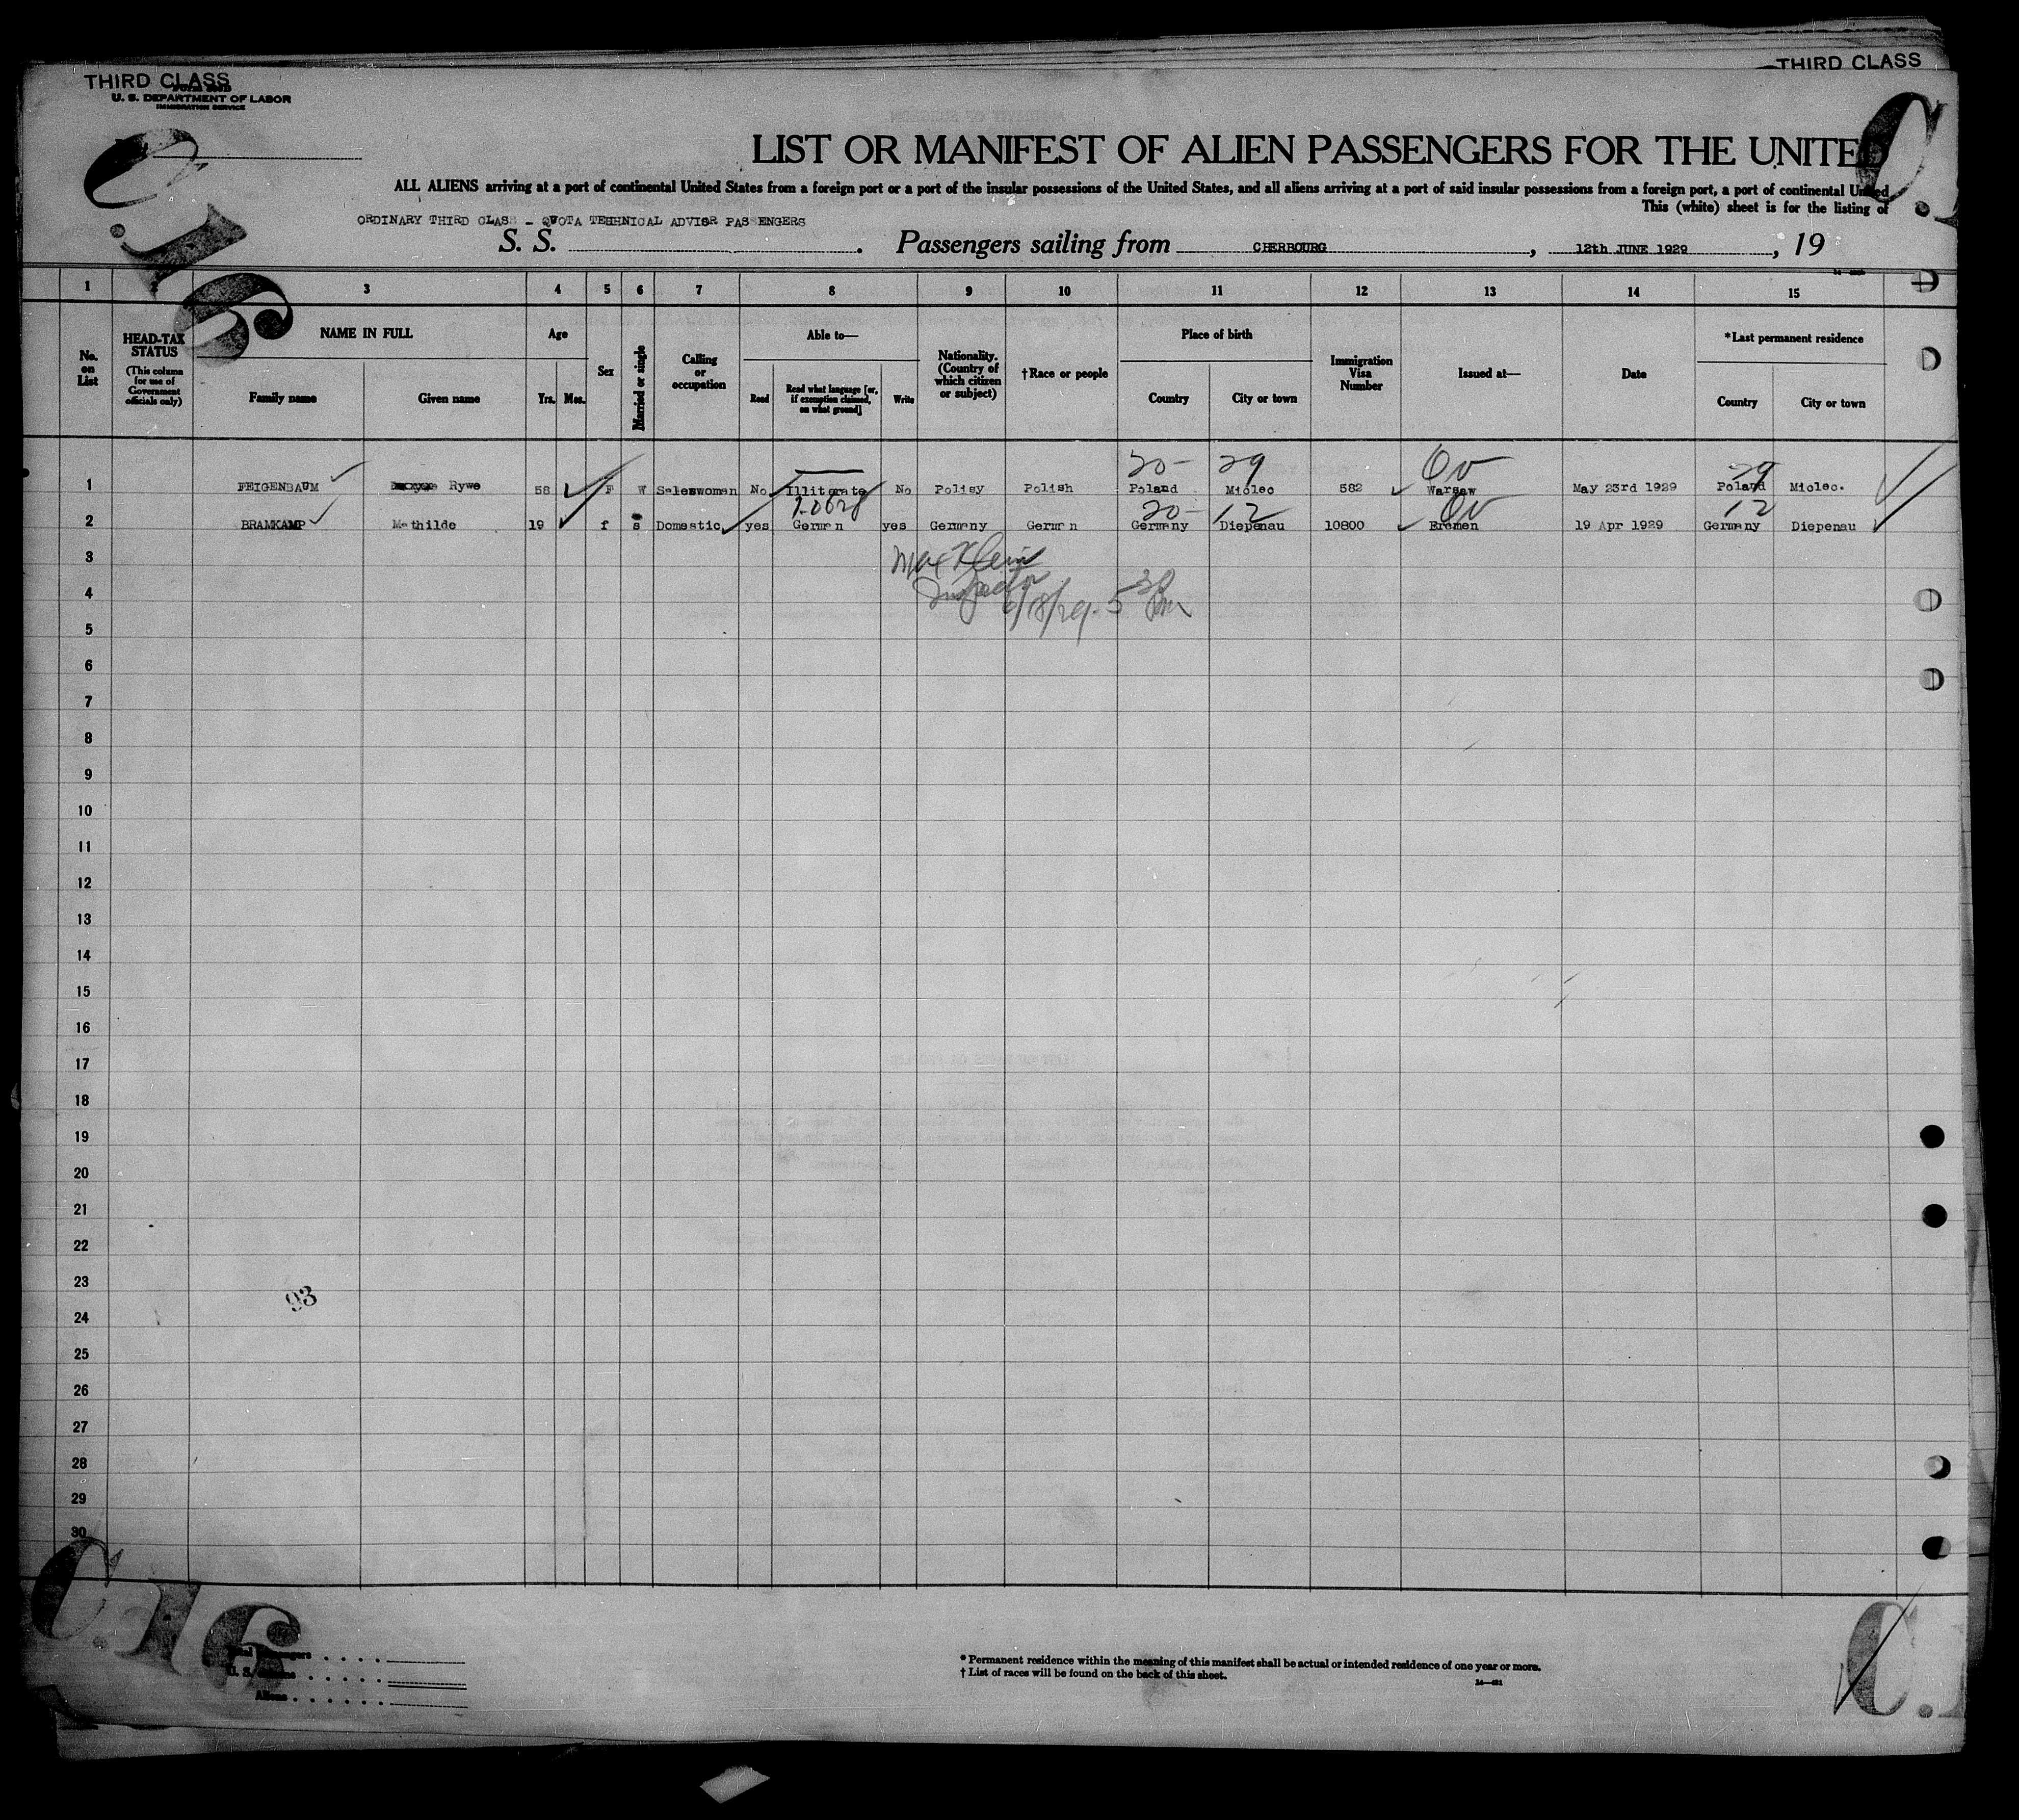 THIRD CLASS
THIRD CLASS
U. S. DEPARTMENT OF LABOR
IMMIGRATION SERVICE
C.16
C.1
LIST OR MANIFEST OF ALIEN PASSENGERS FOR THE UNITED
ALL ALIENS arriving at a port of continental United States from a foreign port or a port of the insular possessions of the United States, and all aliens arriving at a port of said insular possessions from a foreign port, a port of continental United
This (white) sheet is for the listing of
ORDINARY THIRD CLASS - QUOTA TEHHNICAL ADVISR PASSENGERS
S. S. . Passengers sailing from CHERBOURG , 12th JUNE 1929 , 19
1 2 3 4 5 6 7 8 9 10 11 12 13 14 15
No. on List
HEAD-TAX STATUS
(This column for use of Government officials only)
NAME IN FULL
Family name Given name
Age
Yrs. Mos.
Sex
Married or single
Calling or occupation
Able to—
Read Read what language [or, if exemption claimed, on what ground] Write
Nationality. (Country of which citizen or subject)
†Race or people
Place of birth
Country City or town
Immigration Visa Number
Issued at—
Date
*Last permanent residence
Country City or town
20- 29 29
1 FEIGENBAUM Rywe 58 F W Saleswoman No Illiterate No Polisy Polish Poland Miolec 582 Warsaw May 23rd 1929 Poland Miolec.
20- 12 12
2 BRAMKAMP Mathilde 19 f s Domestic yes German yes Germany German Germany Diepenau 10800 Bremen 19 Apr 1929 Germany Diepenau
Max Klein
Inspector
6/18/29. 5 30 Pm
3
4
5
6
7
8
9
10
11
12
13
14
15
16
17
18
19
20
21
22
23
93
24
25
26
27
28
29
30
C.16
Total passengers
U. S. citizens
Aliens
* Permanent residence within the meaning of this manifest shall be actual or intended residence of one year or more.
† List of races will be found on the back of this sheet.
C.1